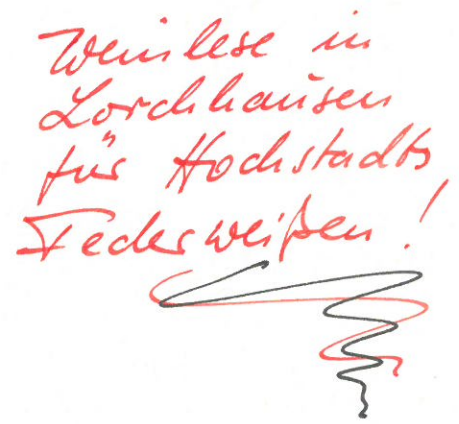 Weinlese in
Lorchhausen
für Hochstadts
Federweißen!